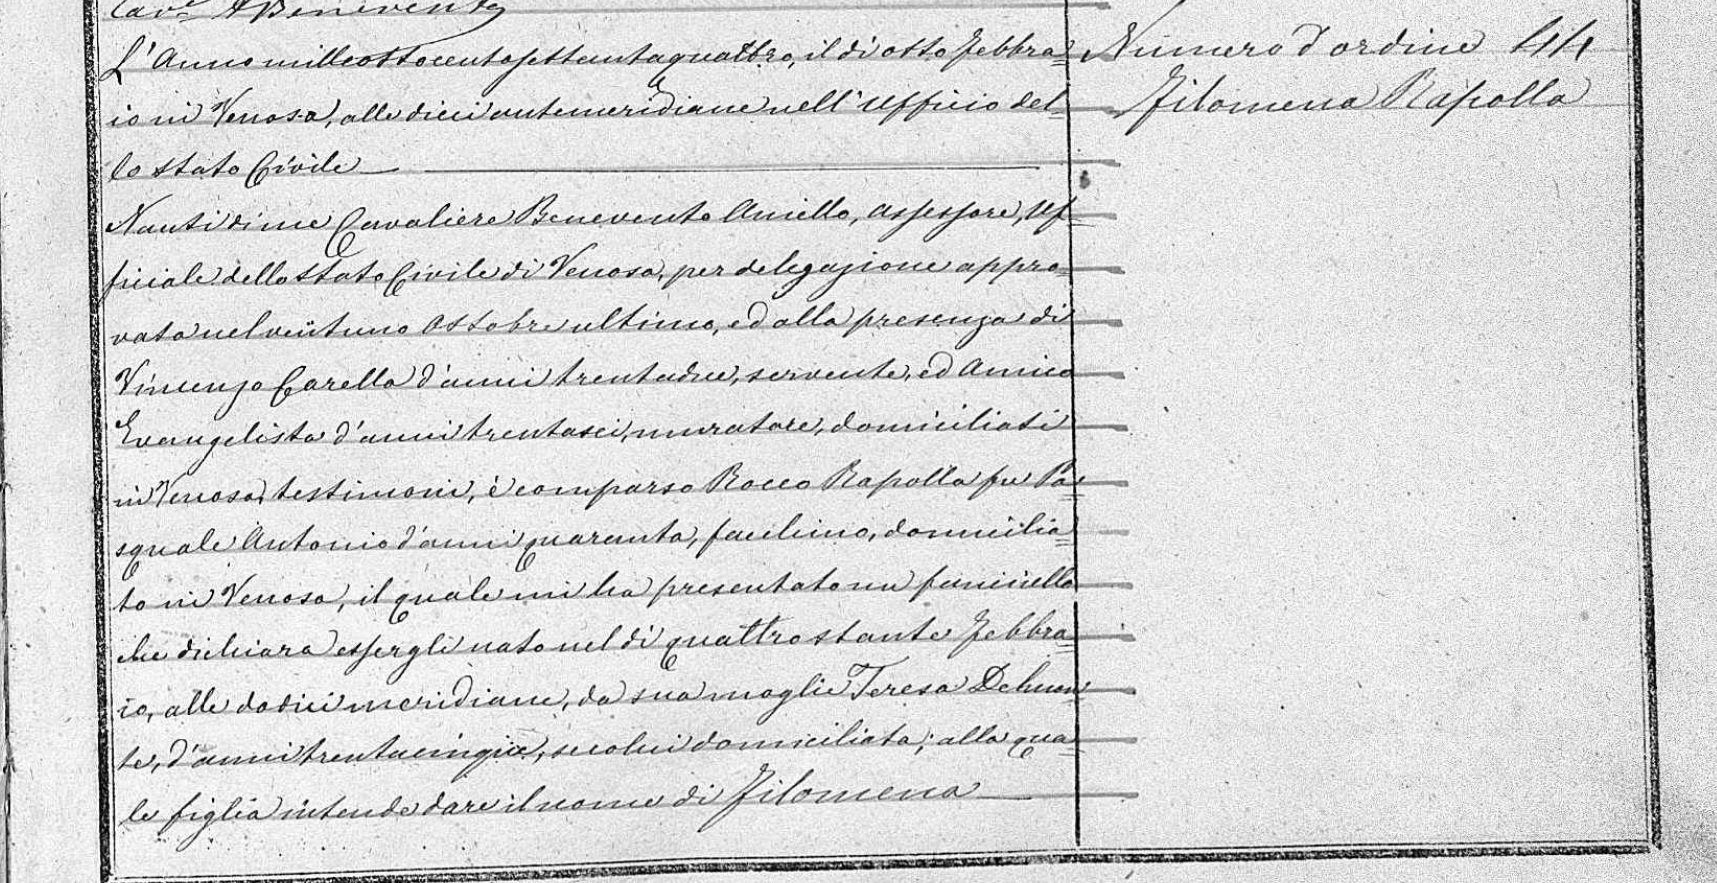 Cav.e A Benevento
L'Anno milleottocentosettantaquattro, il dì otto Febbra= Numero d'ordine 44
io in Venosa, alle dieci antemeridiane nell'Ufficio del= Filomena Rapolla
lo stato Civile
Nanti di me Cavaliere Benevento Aniello, assessore, Uf=
ficiale dello Stato Civile di Venosa, per delegazione appro=
vata nel ventuno Ottobre ultimo, ed alla presenza di
Vincenzo Carella d'anni trentadue, servente, ed Amico
Evangelista d'anni trentasei, muratore, domiciliati
in Venosa, testimoni, è comparso Rocco Rapolla fu Pa=
squale Antonio d'anni quaranta, facchino, domicilia=
to in Venosa, il quale mi ha presentato un fanciullo
che dichiara essergli nato nel dì quattro stante Febbra=
io, alle dodici meridiane, da sua moglie Teresa
te, d'anni trentacinque, secolui domiciliata; alla qua=
le figlia intende dare il nome di Filomena